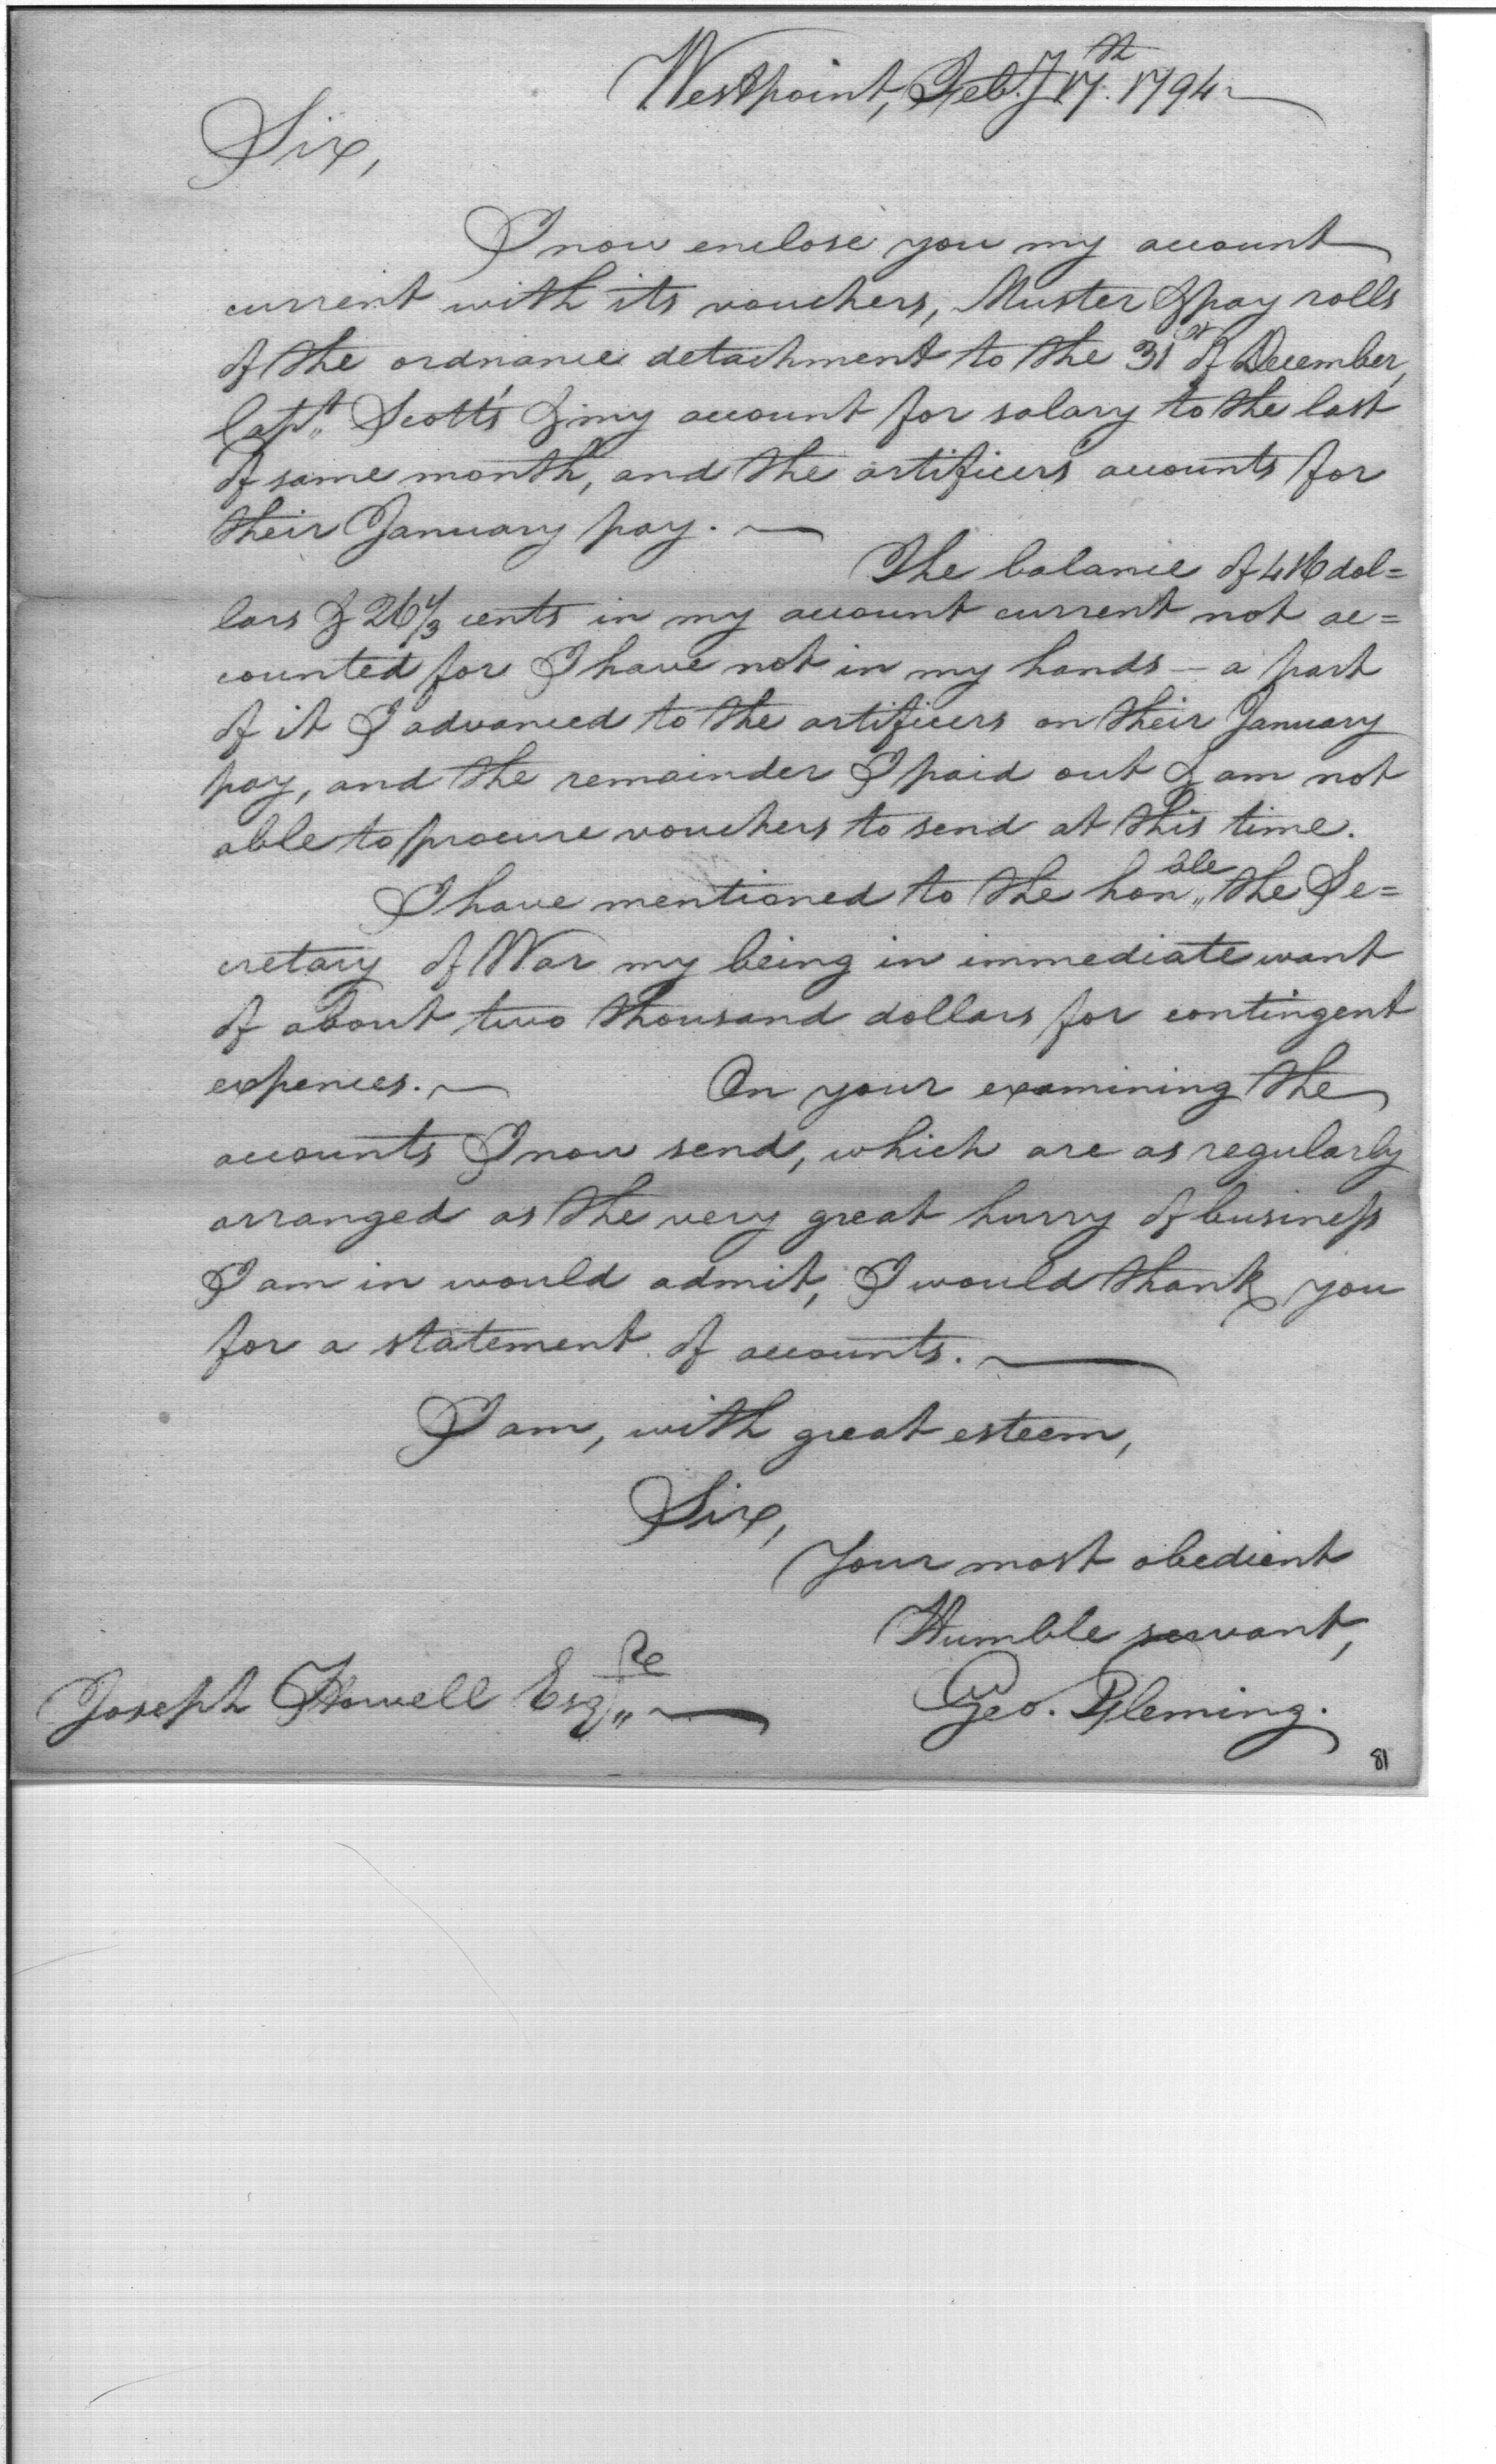 Westpoint, Feb.y 17th. 1794.
Sir,
I now enclose you my account
current with its vouchers, Muster & pay rolls
of the ordnance detachment to the 31st of December,
Capt. Scott's & my account for salary to the last
of same month, and the artificers' accounts for
their January pay. —
The balance of 416 dol=
lars & 26 1/3 cents in my account current not ac=
counted for I have not in my hands — a part
of it I advanced to the artificers on their January
pay, and the remainder I paid out & am not
able to procure vouchers to send at this time.
I have mentioned to the honble the Se=
cretary of War my being in immediate want
of about two thousand dollars for contingent
expences. — On your examining the
accounts I now send, which are as regularly
arranged as the very great hurry of business
I am in would admit, I would thank you
for a statement of accounts. —
I am, with great esteem,
Sir,
Your most obedient
Humble servant,
Joseph Howell Esqre — Geo. Fleming.
81